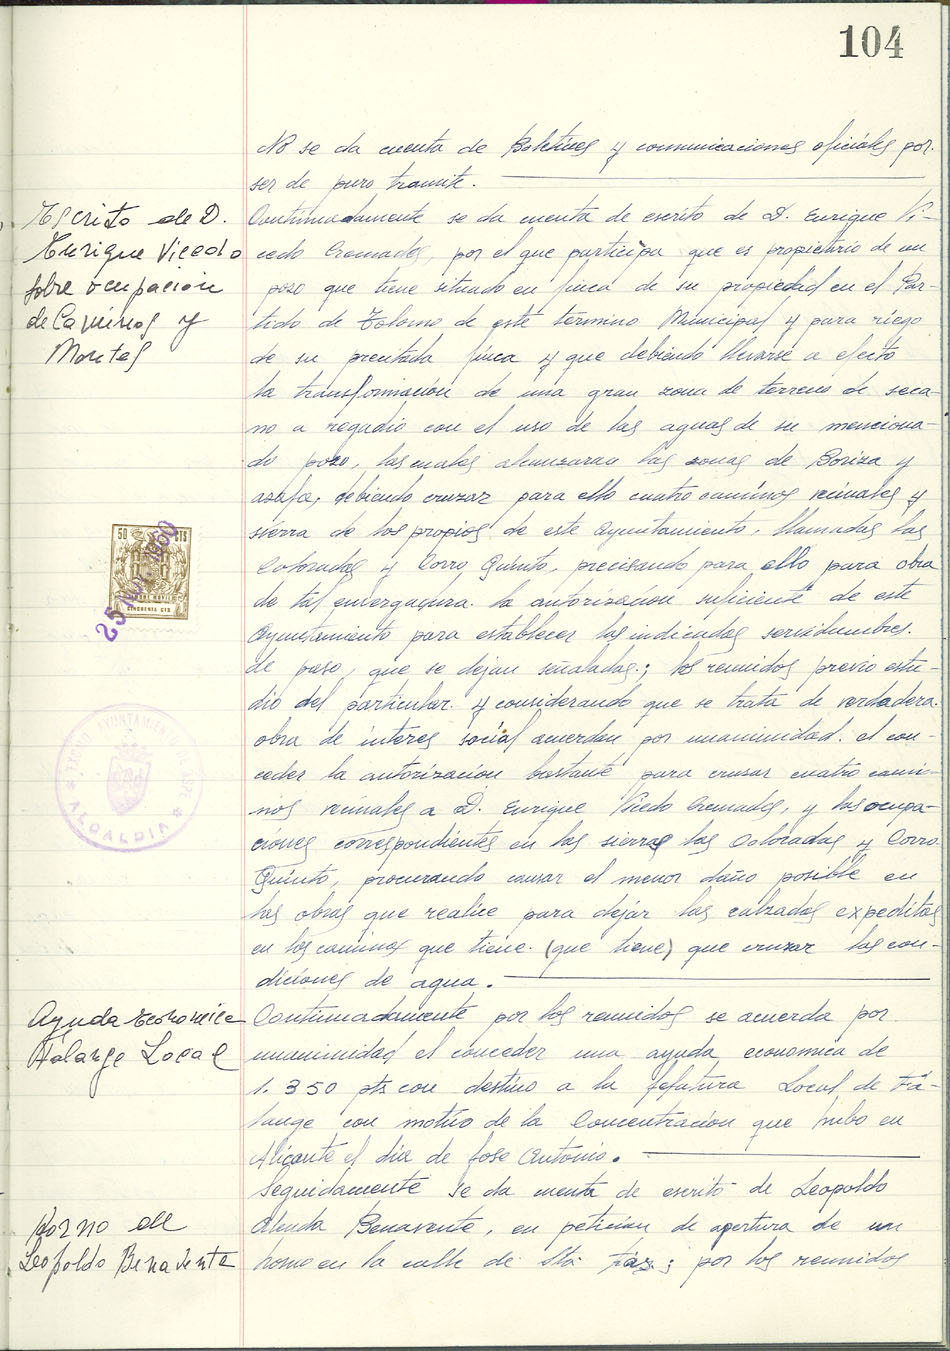 104
No se da cuenta de Boletines y comunicaciones oficiales por
ser de puro tramite.
Escrito de D.
Enrique Vicedo
sobre ocupación
de Caminos y
Montes
Continuadamente se da cuenta de escrito de D. Enrique Vi-
cedo Cremades, por el que participa que es propietario de un
pozo que tiene situado en finca de su propiedad en el Par-
tido de Tolomo de este término Municipal y para riego
de su precitada finca y que debiendo llevarse a efecto
la transformación de una gran zona de terreno de seca-
no a regadio con el uso de las aguas de su menciona-
do pozo, las cuales alcanzaran las zonas de Boriza y
debiendo cruzar para ello cuatro caminos vecinales y
sierra de los propios de este Ayuntamiento, llamadas las
Coloradas y Corro Quinto, precisando para ello para obra
de tal envergadura. la autorización suficiente de este
Ayuntamiento para establecer las indicadas servidumbres.
de paso, que se dejan señaladas.; los reunidos previo estu-
dio del particular. y considerando que se trata de verdadera.
obra de interes social acuerdan por unanimidad. el con-
ceder la autorización bastante para cruzar cuatro cami-
nos vecinales a D. Enrique Vicedo Cremades, y las ocupa-
ciones correspondientes en las sierras las Coloradas y Corro
Quinto, procurando causar el menor daño posible en
las obras que realice para dejar las calzadas expeditas
en los caminos que tiene. (que tiene) que cruzar las con-
diciones de agua.
50 CTS
CINCUENTA CTS
25
1960
AYUNTAMIENTO DE ASPE
ALCALDIA
Ayuda Economica
Falange Local
Continuadamente por los reunidos se acuerda por
unanimidad el conceder una ayuda economica de
1.350 pts con destino a la Jefatura Local, de Fa-
lange con motivo de la Concentración que hubo en
Alicante el dia de Jose Antonio.
Horno de
Leopoldo Benavente
Seguidamente se da cuenta de escrito de Leopoldo
Alenda Benavente, en petición de apertura de un
horno en la calle de Sta Faz; por los reunidos